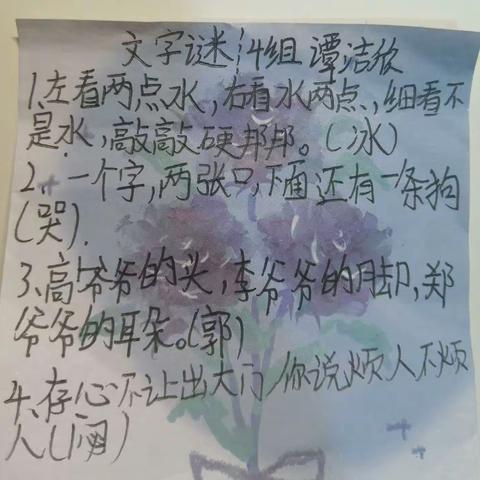 文字谜 14组 谭洁欣
1、左看两点水,右看水两点,细看不
是水,敲敲硬邦邦。(冰)
2、一个字,两张口,下面还有一条狗
(哭).
3、高爷爷的头,李爷爷的脚,郑
爷爷的耳朵。(郭)
4、存心不让出大门,你说烦人不烦
人(闷)